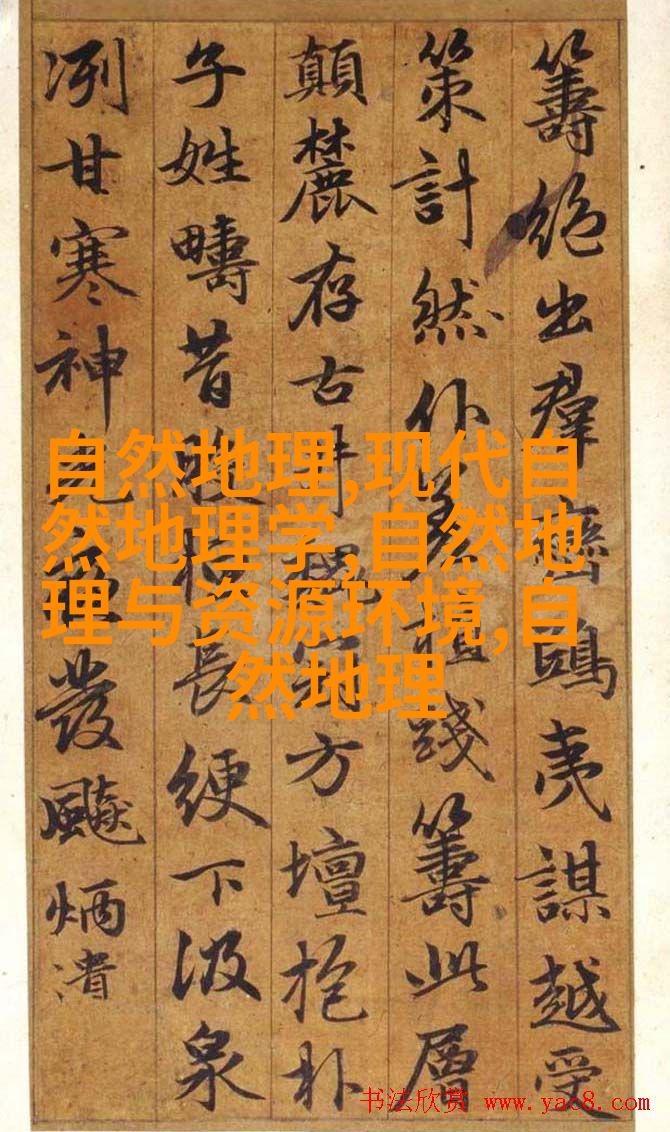 籌絕出群鴟夷謀越受
策計然踐籌此層
顛麓存古井方壇抱朴
子姓疇昔長綆下汲泉
冽甘寒神發飈炳
自然地理,现代自
然地理学,自然地
理与资源环境,自
然地理
书法欣赏 www.yac8.com